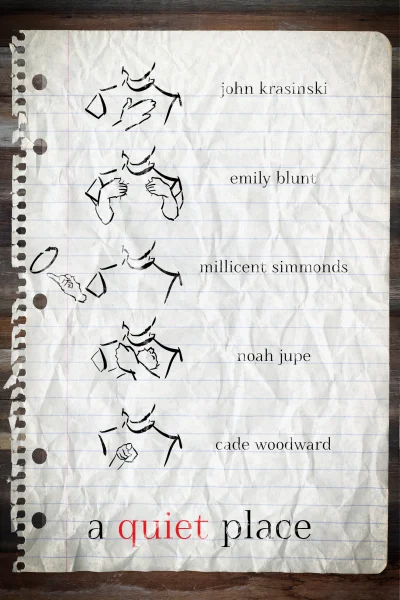 john krasinski
emily blunt
millicent simmonds
noah jupe
cade woodward
a quiet place